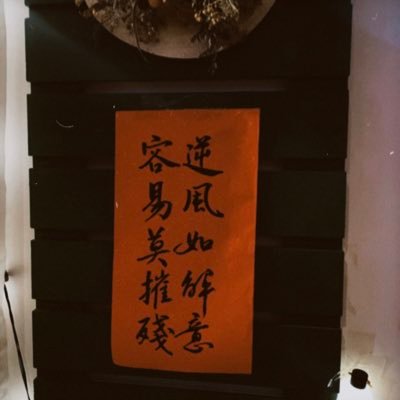 逆風如解意
容易莫摧殘